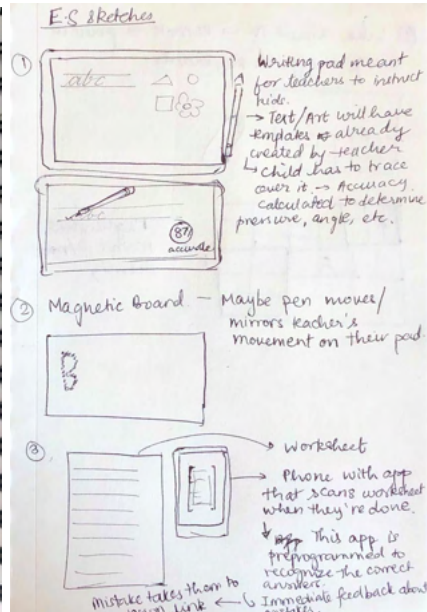 E.S Sketches
①
abc
Writing pad meant
for teachers to instruct
kids.
→ Text/Art will have
templates already
created by teacher
↳ Child has to trace
over it. → Accuracy
calculated to determine
pressure, angle, etc.
abc
87
accurate
② Magnetic Board – Maybe pen moves/
mirrors teacher's
movement on their pad.
B
③
→ Worksheet
→ Phone with app
that scans worksheet
when they're done.
↓ This app is
preprogrammed to
recognize the correct
answers.
↳ Immediate feedback about
Mistake takes them to
link ←